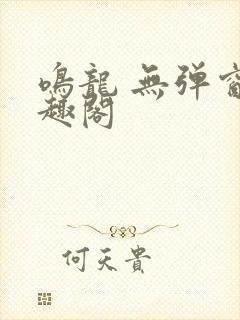 鳴龍 無弹窗
趣閣
何天貴